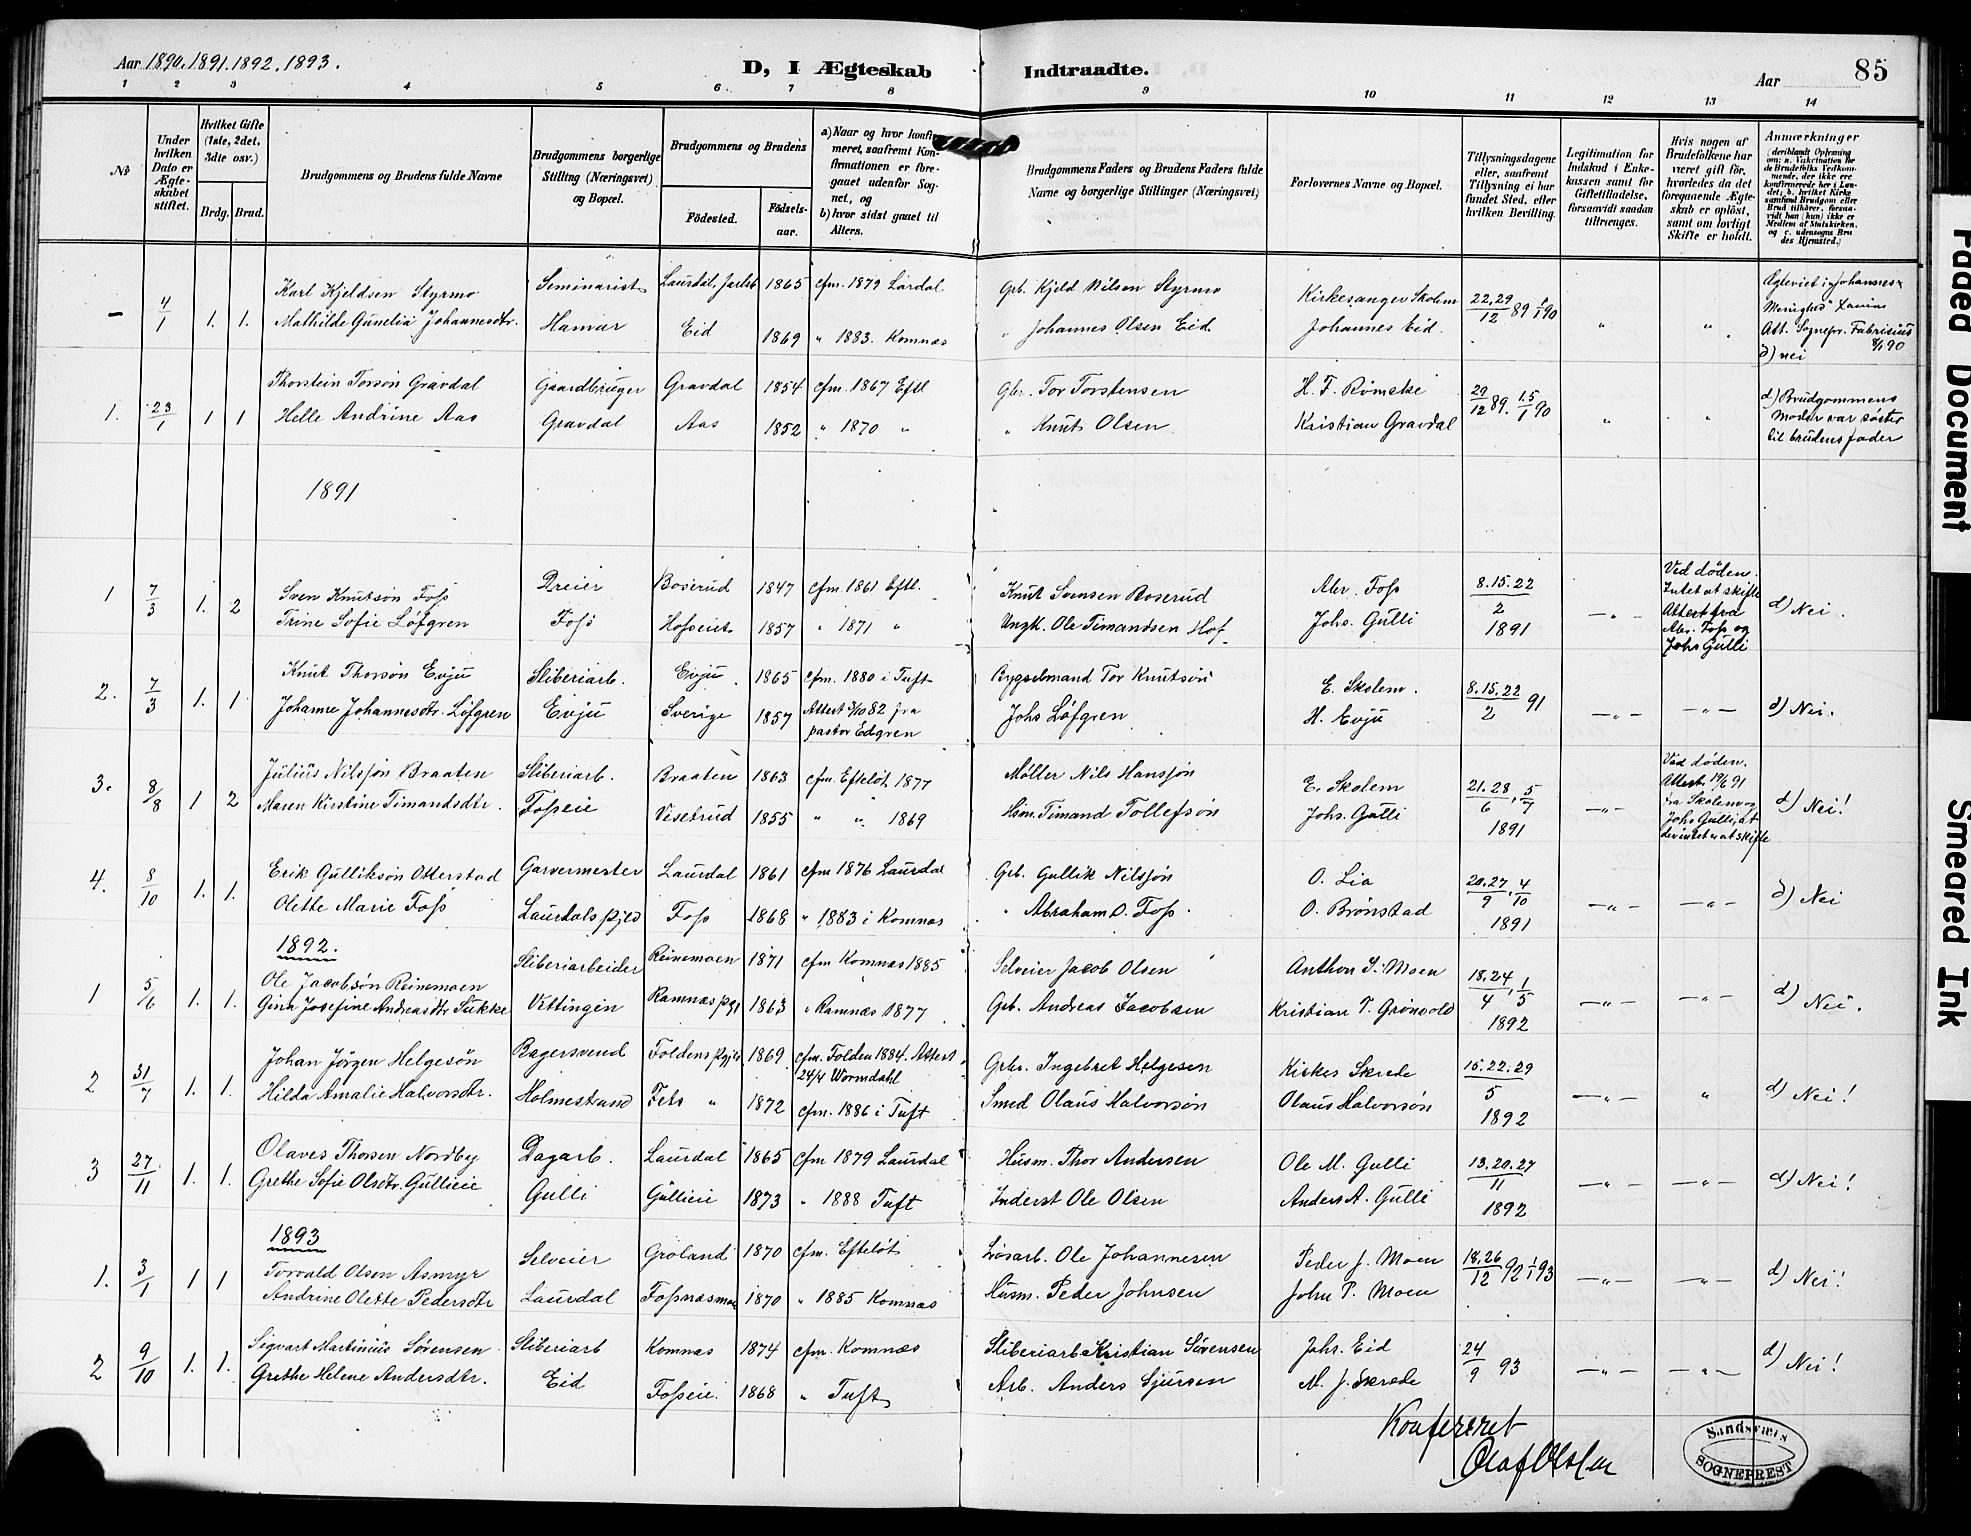 Aar 1890. 1891. 1892. 1893.
D, I Ægteskab Indtraadte.
Aar
85
1 2 3 4 5 6 7 8 9 10 11 12 13 14
No
Under hvilken Dato er Ægteskabet stiftet.
Hvilket Gifte (1ste, 2det, 3die osv.)
Brdg. Brud.
Brudgommens og Brudens fulde Navne
Brudgommens borgerlige Stilling (Næringsvei) og Bopæl.
Brudgommens og Brudens
Fødested.
Fødselsaar.
a) Naar og hvor konfirmeret, saafremt Konfirmationen er foregaaet udenfor Sognet, og
b) hvor sidst gaaet til Alters.
Brudgommens Faders og Brudens Faders fulde Navne og borgerlige Stillinger (Næringsvei)
Forlovernes Navne og Bopæl.
Tillysningsdagene eller, saafremt Tillysning ei har fundet Sted, efter hvilken Bevilling.
Legitimation for Indskud i Enkekassen samt for Giftetilladelse, forsaavidt saadan tiltrænges.
Hvis nogen af Brudefolkene har været gift før, hvorledes da det foregaaende Ægteskab er opløst, samt om lovligt Skifte er holdt.
Anmærkninger
(deriblandt Oplysning om: a. Vakcination for de Brudefolks Vedkommende, der ikke ere konfirmerede her i Landet; b. hvilket Kirkesamfund Brudgom eller Brud tilhører, forsaavidt han (hun) ikke er Medlem af Statskirken, og c. udensogns Brudes Hjemsted.)
– 4/1 1. 1. Karl Kjeldsen Styrmo Seminarist Laurdal, Jarlsb 1865 cfm. 1879 Lardal Grb. Kjeld Nilsen Styrmo Kirkesanger Skolem 22.29/12 89 1/1 90
Mathilde Gunelia Johannesdtr. Hamar Eid 1869 " 1883. Komnæs " Johannes Olsen Eid Johannes Eid. " "
Ægteviet i Johannes
Menighed
Att. Sognepr. Fabrisius 8/1 90
d) nei
1. 23/1 1 1 Thorstein Torsøn Gravdal Gaardbruger Gravdal 1854 cfm. 1867 Eftl Gbr. Tor Torstensen H. F. Rømske 29/12 89. 1.5/1 90
Helle Andrine Aas Gravdal Aas 1852 " 1870 " " Knut Olsen Kristian Gravdal " "
d) Brudgommens
Moder var søster
til brudens fader
1891
1 7/3 1. 2 Sven Knutsøn Foss Dreier Boserud 1847 cfm. 1861 Eftl. Knut Svensen Boserud Abr. Foss 8.15.22/2
Trine Sofie Løfgren Foss Hofseie 1857 " 1871 " Ungk. Ole Timandsen Hof Johs. Gulli 1891 –"–
Ved døden.
Intet at skifte
Attest fra
Abr. Foss og
Johs Gulli
d) Nei.
2. 7/3 1. 1 Knut Thorsøn Evju Sliberiarb. Evju 1865 cfm. 1880 i Tuft Bygselmand Tor Knutsøn E. Skolem. 8.15.22/2 91
Johanne Johannesdtr. Løfgren Evju Sverige 1857 Attest 5/10 82 fra Johs Løfgren H. Evju –"– –"– d) Nei.
pastor Edgren
3. 8/8 1 2 Julius Nilsson Braaten Sliberiarb. Braaten 1863 cfm. Efteløt 1877 Møller Nils Hansson E. Skolem 21.28/6, 5/7
Maren Kirstine Timandsdtr. Fosseie Visetrud 1855 " " 1869 Hsm. Timand Tollefsøn Johs. Gulli 1891 –"–
Ved døden.
Attest. 19/6 91
fra Skolem og
Johs Gulli, at
der intet er at skifte
d) Nei!
4. 8/10 1. 1. Erik Gulliksøn Otterstad Garvermester Laurdal 1861 cfm 1876 Laurdal Grb. Gullik Nilsson O. Lia 20.27/9, 4/10
Olette Marie Foss Laurdals pgjld Foss 1868 " 1883 i Komnæs " Abraham O. Foss. O. Brønstad 1891 –"– –"– d) Nei
1892.
1 5/6 1. 1. Ole Jacobsøn Reinemoen Sliberiarbeider Reinemoen 1871 cfm Komnæs 1885 Selveier Jacob Olsen Anthon I. Moen 18.24/4, 1/5
Gina Josefine Andreasdtr Sukke Vittingen Ramnæs pgj 1863 " Ramnæs 1877 Grb. Andreas Jacobsen Kristian P. Grønvold 1892 –"– –"– d) Nei.
2 31/7 1. 1. Johan Jørgen Helgesøn Bagersvend Foldens pgjld 1869 cfm. Folden 1884. Attest Grbr. Ingebret Helgesen Kirkes Skrede 15.22.29/5
24/4 Wormdahl
Hilda Amalie Halvorsdtr. Holmestrand Fets " 1872 cfm. 1886 i Tuft Smed Olaus Halvorsøn Olaus Halvorsøn 1892 –"– " d) Nei!
3 27/11 1. 1. Olaves Thorsen Nordby Dagarb. Laurdal 1865 cfm 1879 Laurdal Husm. Thor Andersen Ole M. Gulli 13.20.27/11
Grethe Sofie Olsdtr. Gullieie Gulli Gullieie 1873 " 1888 Tuft Inderst Ole Olsen Anders A. Gulli 1892 –"– –"– d) Nei!
1893
1. 3/1 1 1 Torvald Olsen Asmyr Selveier Groland 1870 cfm. Efteløt Løsarb. Ole Johannesen Peder J. Moen 18.26/12 92 1/1 93
Andrine Olette Pedersdtr Laurdal Fossnæsmoe 1870 " 1885 Komnæs Husm. Peder Johnsen John P. Moen –"– –"– d) Nei!
2 9/10 1. 1. Sigvart Martinius Sørensen Sliberiarb Komnæs 1874 cfm. Komnæs Sliberiarb Kristian Sørensen Johs. Eid 24/9 93
Grethe Helene Andersdtr. Eid Fosseie 1868 " Tuft Arb. Anders Sjursen M. J. Skrede –"– –"– d) Nei!
Konfereret
Olaf Olsen
Sandsværs
SOGNEPREST
Faded Document
Smeared Ink